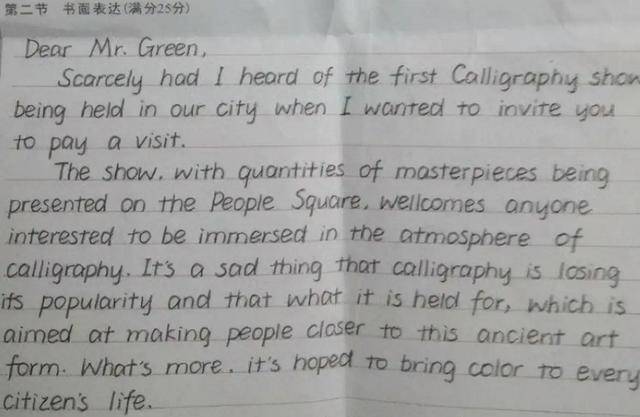 第二节 书面表达(满分25分)
Dear Mr. Green,
Scarcely had I heard of the first Calligraphy show
being held in our city when I wanted to invite you
to pay a visit.
The show, with quantities of masterpieces being
presented on the People Square, wellcomes anyone
interested to be immersed in the atmosphere of
calligraphy. It's a sad thing that calligraphy is losing
its popularity and that what it is held for, which is
aimed at making people closer to this ancient art
form. What's more, it's hoped to bring color to every
citizen's life.